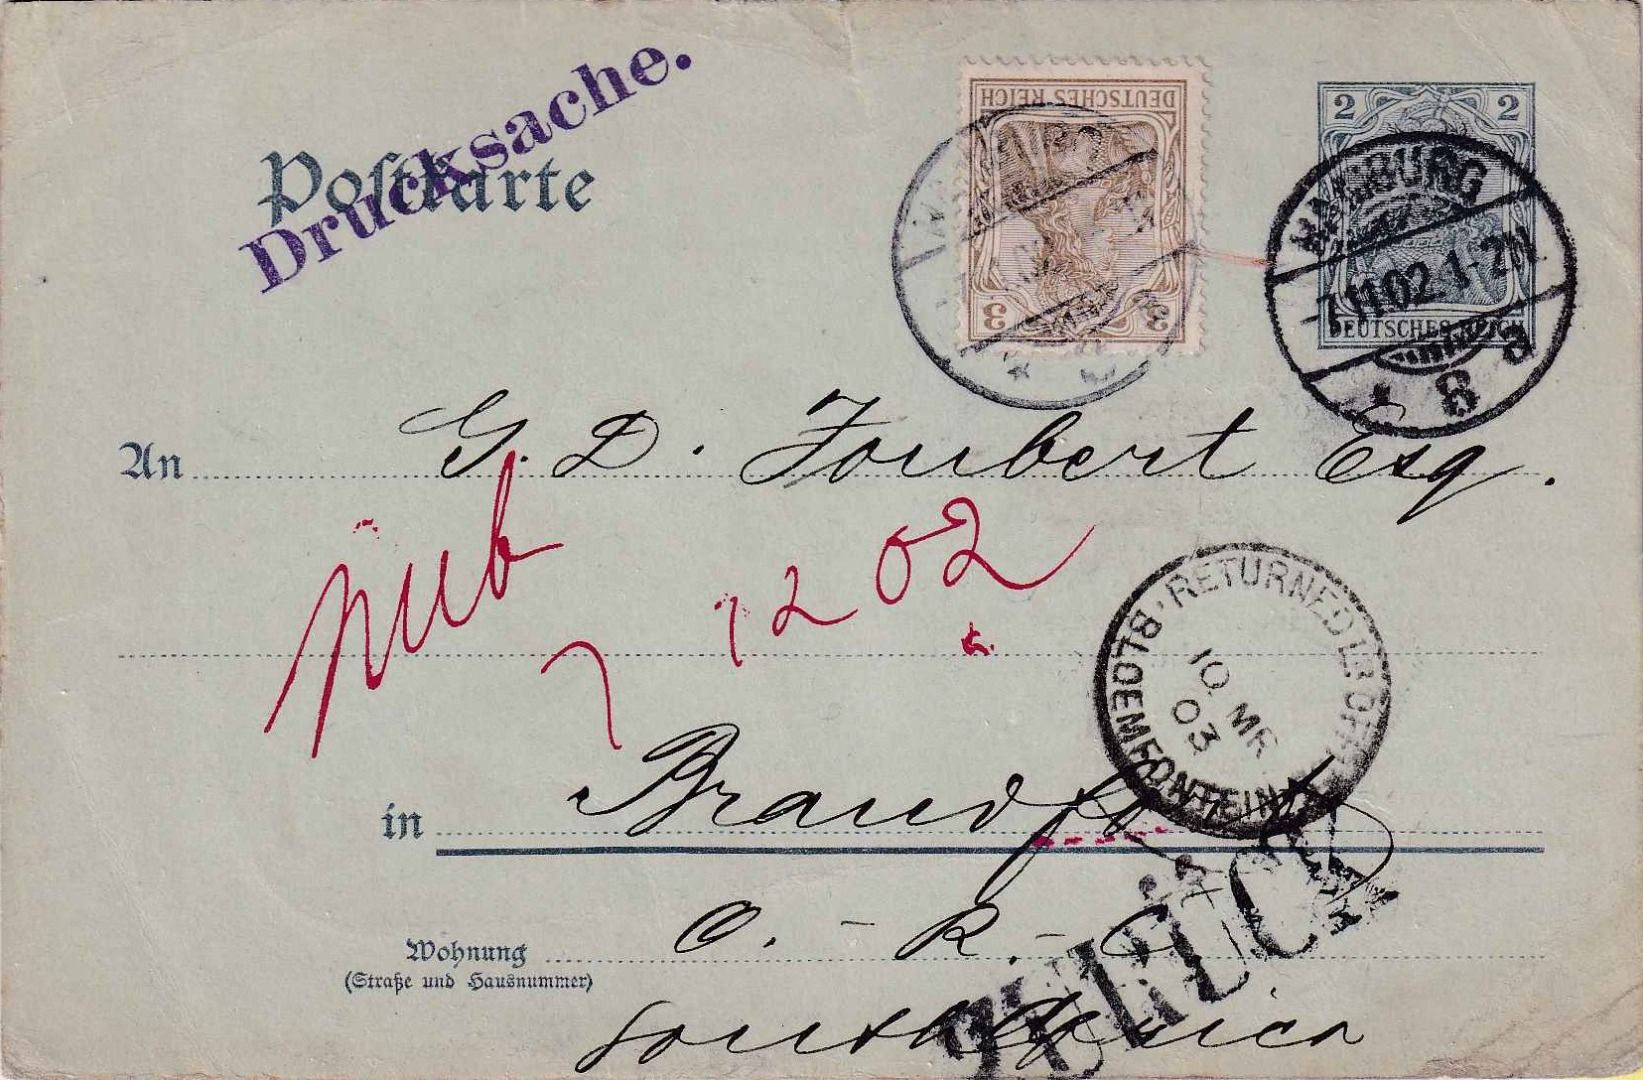 Drucksache.
Postkarte
DEUTSCHES REICH
3 3
2 2
DEUTSCHES REICH
HAMBURG
7.11.02.1-2N.
* 8 a
An G. D. Joubert Esq.
7 12 02
RETURNED LR OFFI
BLOEMFONTEIN
10 MR
03
in
O. - R. - C.
Wohnung
(Straße und Hausnummer)
South Africa
ZURÜCK